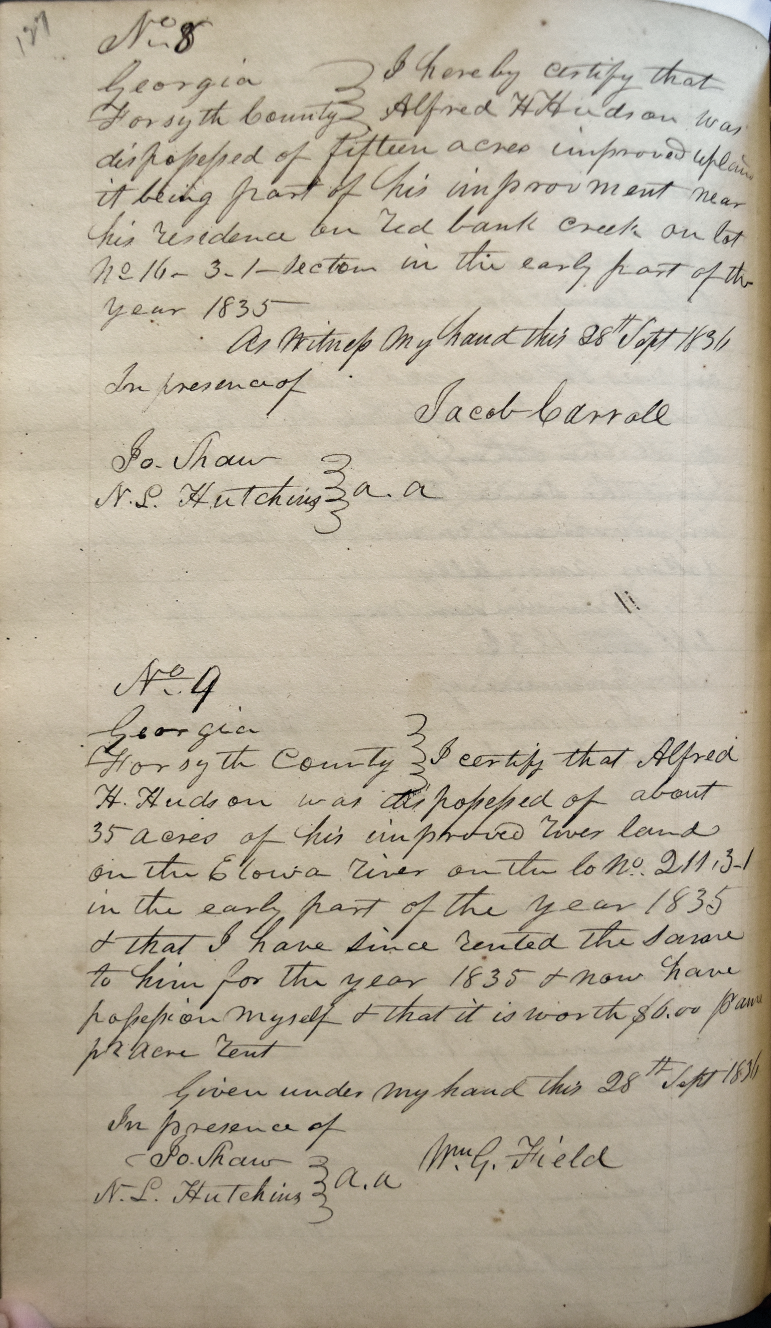 127
No. 8
Georgia } I hereby certify that
Forsyth County } Alfred H Hudson was
dispossessed of fifteen acres improved upland
it being part of his improvment near
his residence on Red bank creek on lot
No 16 - 3 - 1 - Section in the early part of the
year 1835
As Witness my hand this 28th Sept 1836
In presence of
Jacob Carroll
Jo. Shaw
N. L. Hutchins } a. a
No. 9
Georgia
Forsyth County } I certify that Alfred
H. Hudson was dispossessed of about
35 acres of his improved River land
on the Etowa River on the lo No. 211, 3-1
in the early part of the year 1835
& that I have since rented the same
to him for the year 1835 & now have
possession myself & that it is worth $6.00
pr acre rent
Given under my hand this 28th Sept 1836
In presence of
Jo. Shaw
Wm. G. Field
N. L. Hutchins } a. a